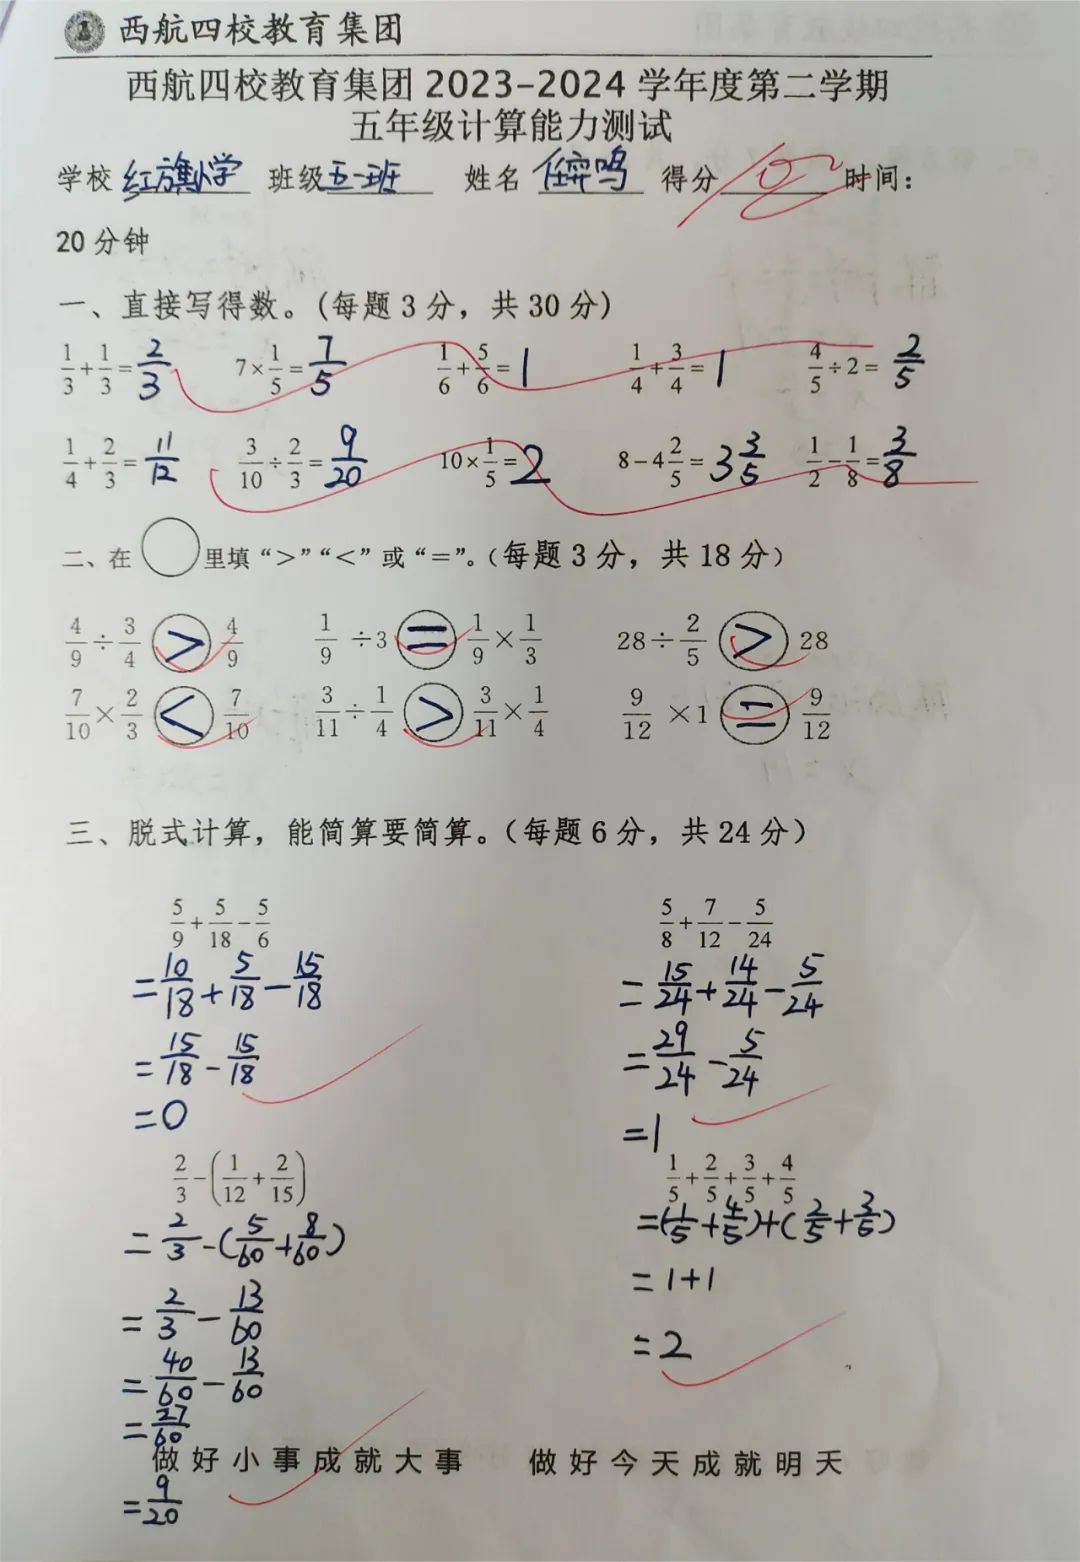 西航四校教育集团
西航四校教育集团 2023-2024 学年度第二学期
五年级计算能力测试
学校 红旗小学 班级 五一班 姓名 任弈鸣 得分 时间：
20 分钟
一、直接写得数。(每题 3 分，共 30 分)
1/3+1/3=2/3 7×1/5=7/5 1/6+5/6=1 1/4+3/4=1 4/5÷2=2/5
1/4+2/3=11/12 3/10÷2/3=9/20 10×1/5=2 8-4 2/5=3 3/5 1/2-1/8=3/8
二、在○里填“>”“<”或“=”。（每题 3 分，共 18 分）
4/9÷3/4 > 4/9 1/9÷3 = 1/9×1/3 28÷2/5 > 28
7/10×2/3 < 7/10 3/11÷1/4 > 3/11×1/4 9/12×1 = 9/12
三、脱式计算，能简算要简算。（每题 6 分，共 24 分）
5/9+5/18-5/6
=10/18+5/18-15/18
=15/18-15/18
=0
5/8+7/12-5/24
=15/24+14/24-5/24
=29/24-5/24
=1
2/3-(1/12+2/15)
=2/3-(5/60+8/60)
=2/3-13/60
=40/60-13/60
=27/60
=9/20
1/5+2/5+3/5+4/5
=(1/5+4/5)+(2/5+3/5)
=1+1
=2
做好小事成就大事 做好今天成就明天